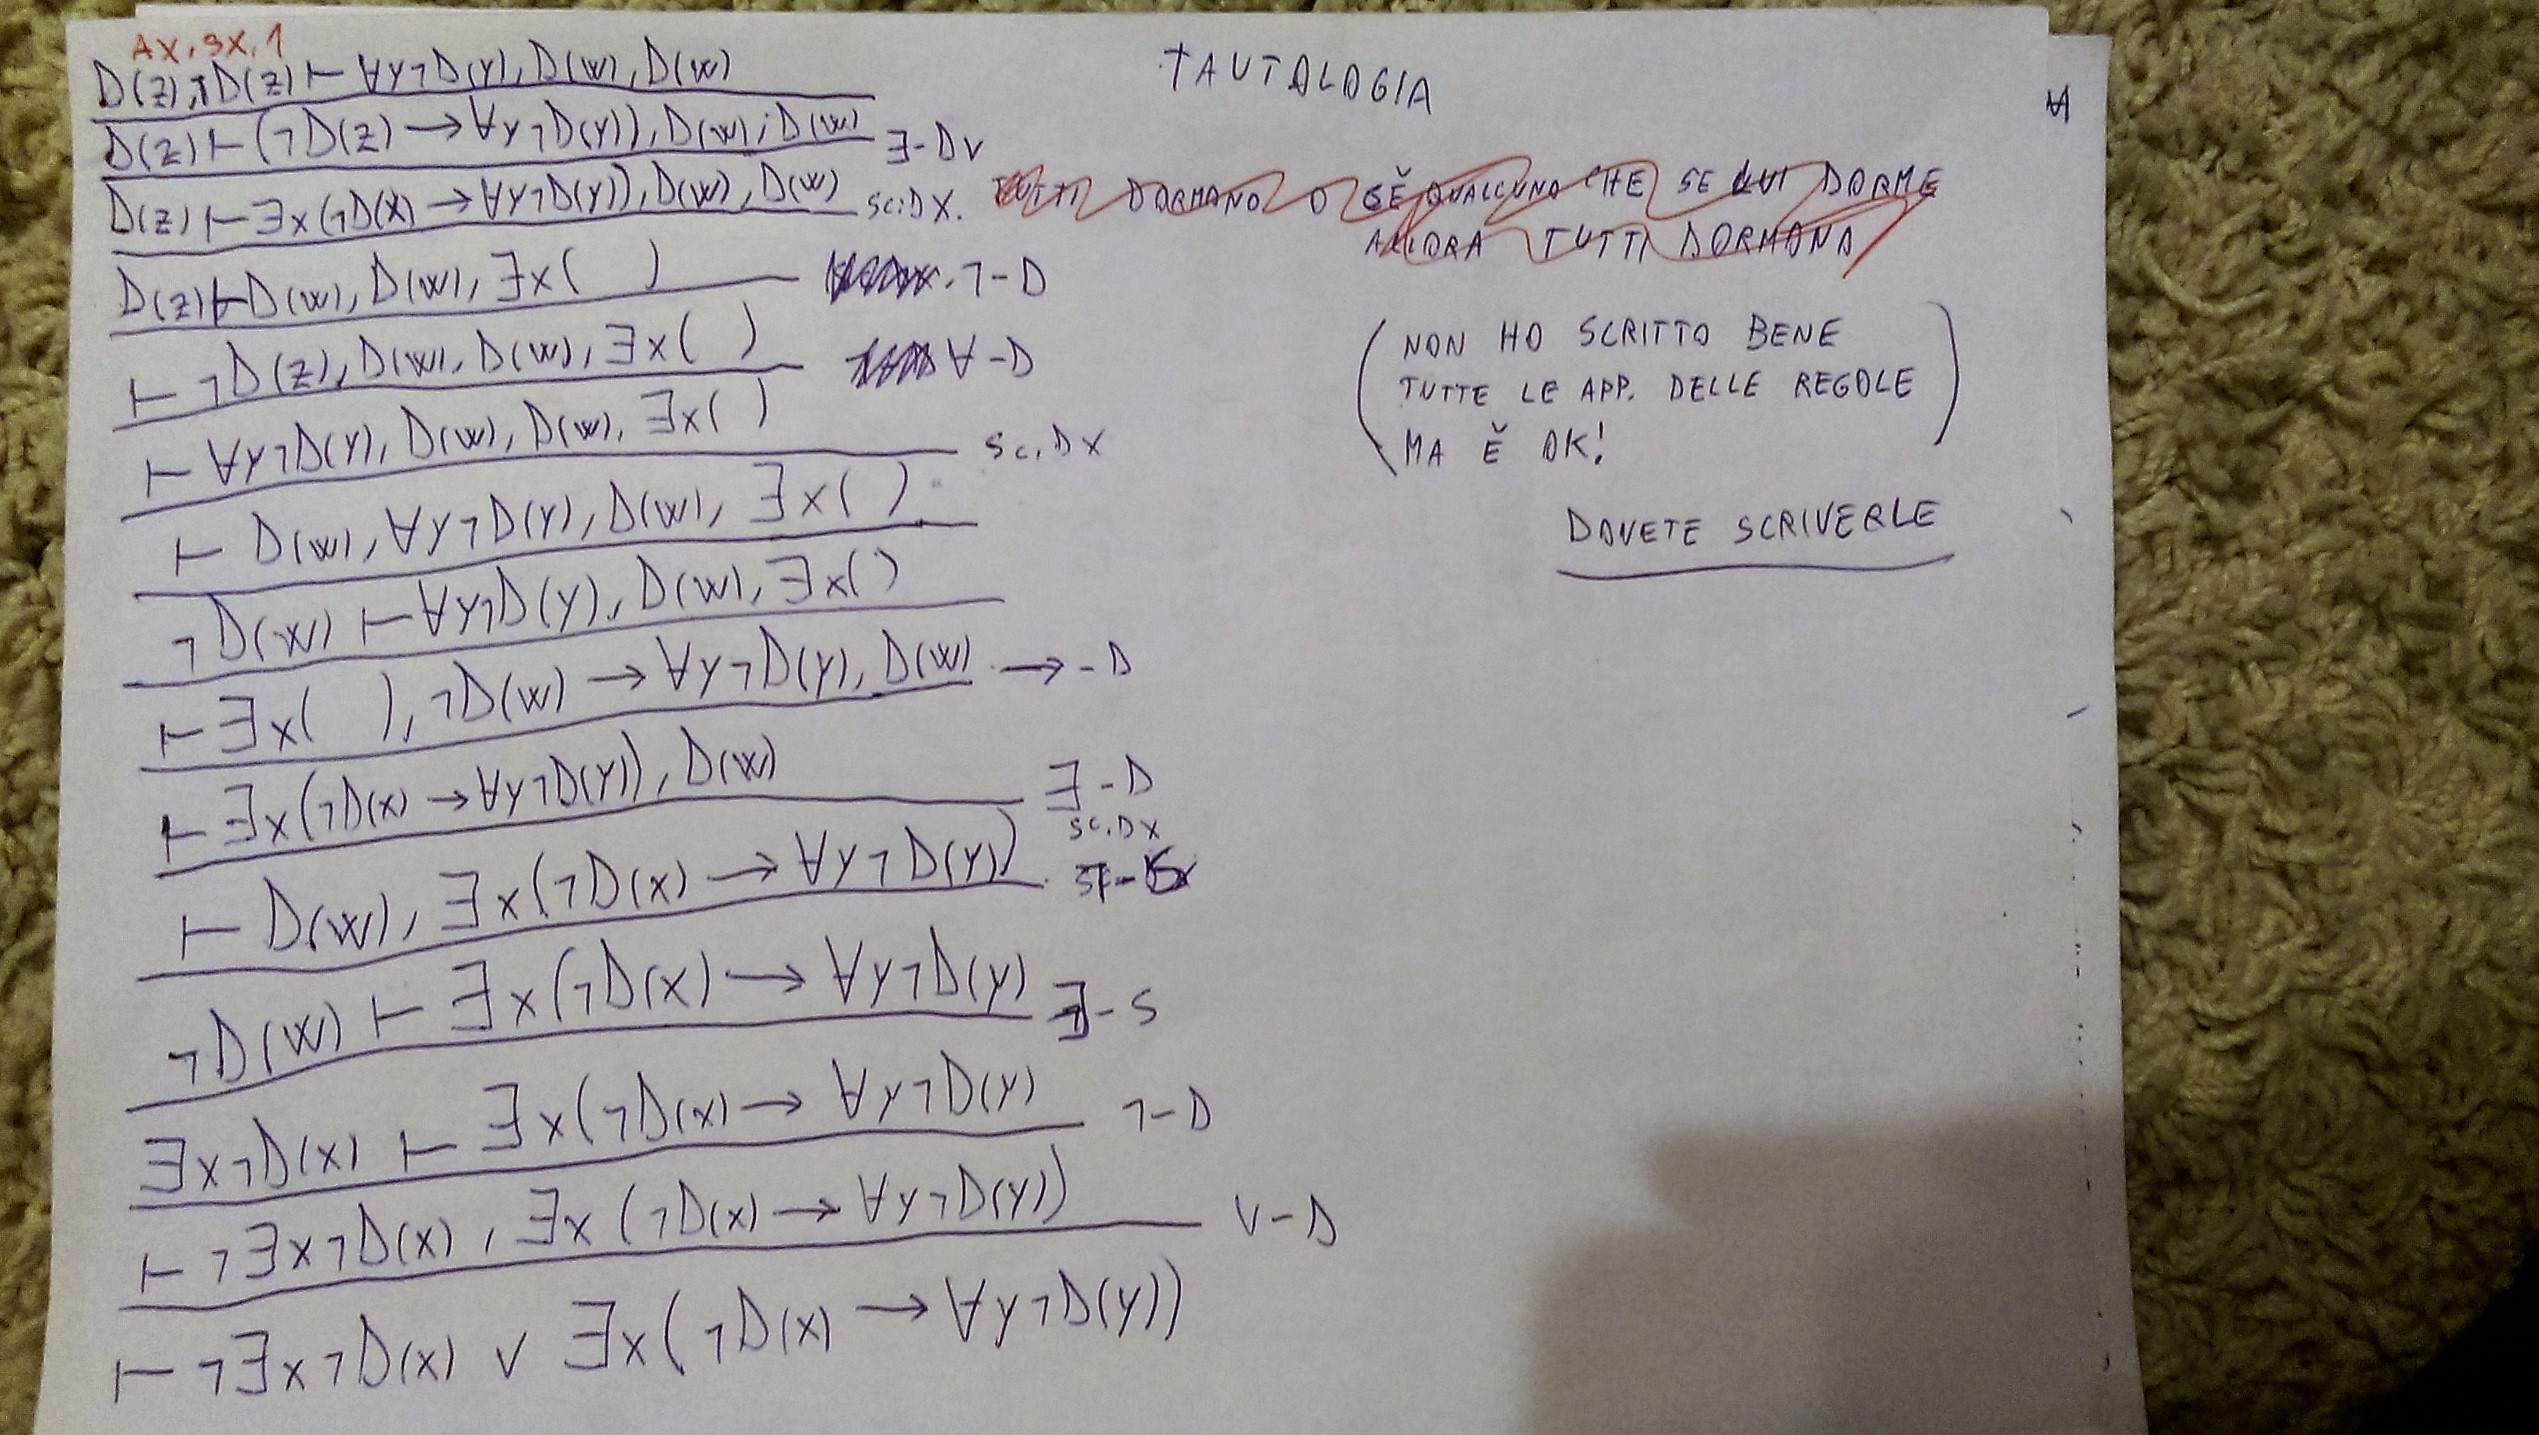 AX. SX. 1
D(z), ¬D(z) ⊢ ∀y¬D(y), D(w), D(w)
D(z) ⊢ (¬D(z) → ∀y¬D(y)), D(w), D(w) ∃-Dv
D(z) ⊢ ∃x(¬D(x) → ∀y¬D(y)), D(w), D(w) sc. DX.
D(z) ⊢ D(w), D(w), ∃x( ) ¬-D
⊢ ¬D(z), D(w), D(w), ∃x( ) ∀-D
⊢ ∀y¬D(y), D(w), D(w), ∃x( ) sc. DX
⊢ D(w), ∀y¬D(y), D(w), ∃x( )
¬D(w) ⊢ ∀y¬D(y), D(w), ∃x( )
⊢ ∃x( ), ¬D(w) → ∀y¬D(y), D(w) →-D
⊢ ∃x(¬D(x) → ∀y¬D(y)), D(w) ∃-D
sc. DX
⊢ D(w), ∃x(¬D(x) → ∀y¬D(y))
¬D(w) ⊢ ∃x(¬D(x) → ∀y¬D(y) ∃-S
∃x¬D(x) ⊢ ∃x(¬D(x) → ∀y¬D(y) ¬-D
⊢ ¬∃x¬D(x), ∃x(¬D(x) → ∀y¬D(y)) ∨-D
⊢ ¬∃x¬D(x) ∨ ∃x(¬D(x) → ∀y¬D(y))
TAUTOLOGIA
TUTTI DORMONO O C'È QUALCUNO CHE SE LUI DORME
ALLORA TUTTI DORMONO
(NON HO SCRITTO BENE
TUTTE LE APP. DELLE REGOLE
MA È OK!)
DOVETE SCRIVERLE